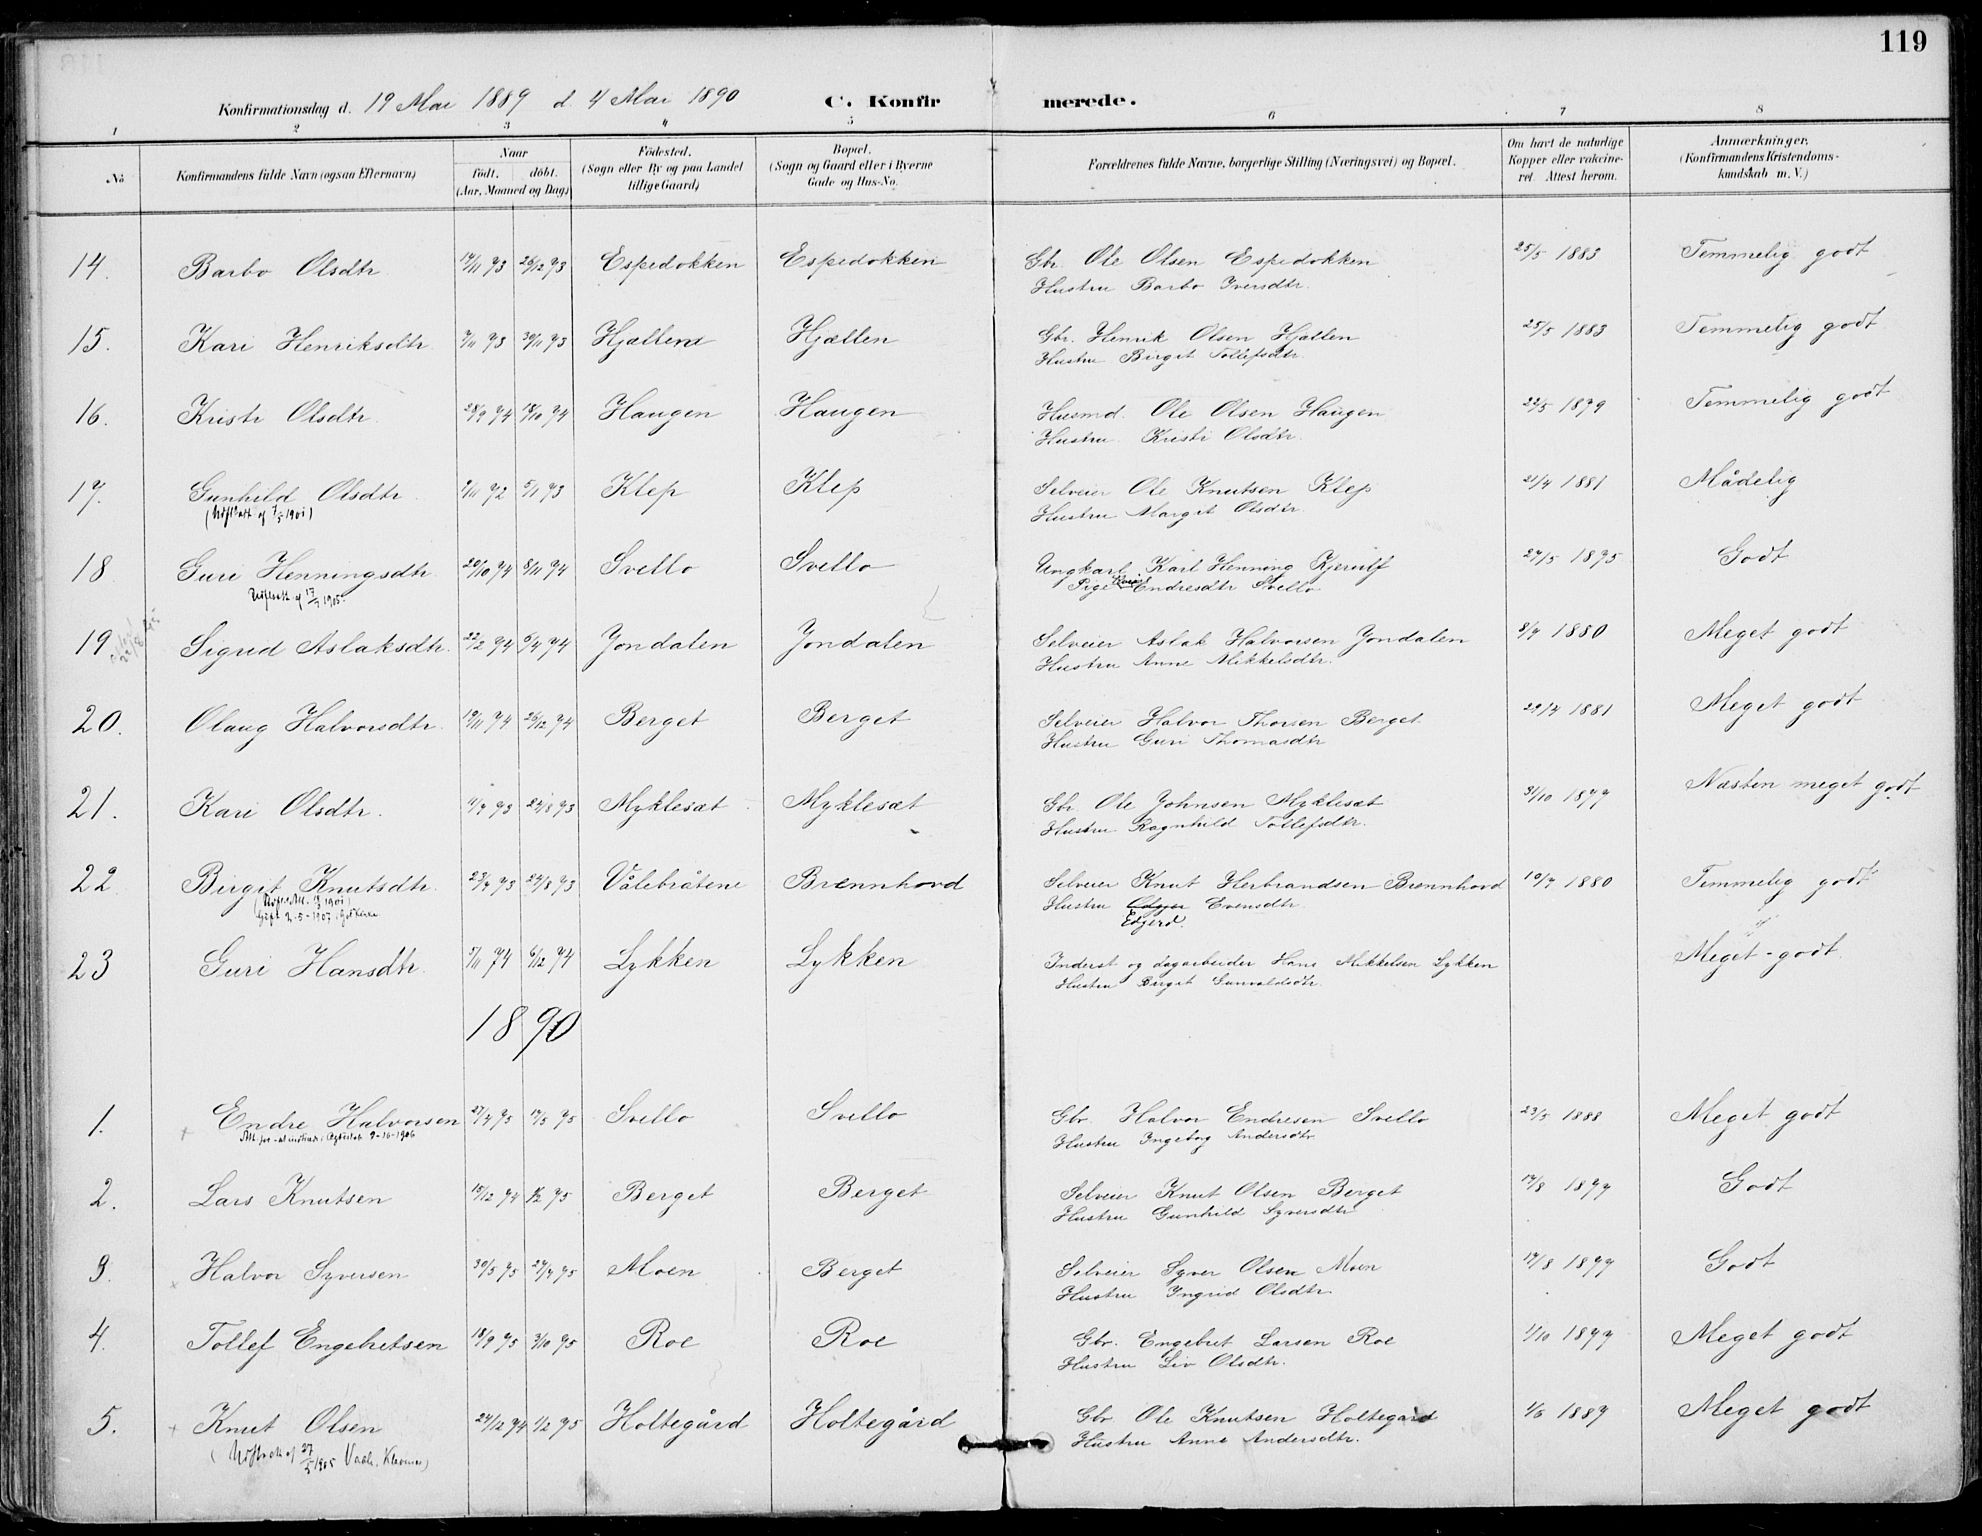 119
Konfirmationsdag d. 19 Mai 1889 d. 4 Mai 1890 C. Konfirmerede.
1 2 3 4 5 6 7 8
No
Konfirmandens fulde Navn (ogsaa Efternavn)
Naar
födt. döbt.
(Aar, Maaned og Dag)
Födested.
(Sogn eller By og paa Landet
tillige Gaard)
Bopæl.
(Sogn og Gaard eller i Byerne
Gade og Hus-No.
Forældrenes fulde Navne, borgerlige Stilling (Næringsvei) og Bopæl.
Om havt de naturlige
Kopper eller vakcine-
ret. Attest herom.
Anmærkninger.
(Konfirmandens Kristendoms-
kundskab m. V.)
14. Barbo Olsdtr 14/11 73 26/12 73 Espedokken Espedokken Gbr. Ole Olsen Espedokken 25/5 1883 Temmelig godt
Hustru Barbo Iversdtr.
15. Kari Henriksdtr 7/11 73 30/11 73 Hjallen Hjællen Gbr. Henrik Olsen Hjallen 25/5 1883 Temmelig godt
Hustru Birget Tollefsdtr.
16. Kristi Olsdtr. 28/9 74 18/10 74 Haugen Haugen Husmd. Ole Olsen Haugen 22/5 1879 Temmelig godt
Hustru Kristi Olsdtr.
17. Gunhild Olsdtr. 9/11 72 5/1 73 Klep Klep Selveier Ole Knutsen Klep 21/4 1881 Mådelig
Hustru Marget Olsdtr.
18 Guri Henningsdtr. 20/10 74 8/11 74 Svello Svello Ungkarl Karl Henning Kjerulf 27/5 1875 Godt
Pige Endresdtr Svello
19. Sigrid Aslaksdtr. 22/2 74 6/4 74 Jondalen Jondalen Selveier Aslak Halvorsen Jondalen 8/7 1880 Meget godt
Hustru Anne Mikkelsdtr.
20. Olaug Halvorsdtr. 19/11 74 26/12 74 Berget Berget Selveier Halvor Thorsen Berget 22/4 1881 Meget godt
Hustru Guri Thomasdtr
21. Kari Olsdtr. 11/7 73 24/8 73 Myklesæt Myklesæt Gbr. Ole Johnsen Myklesæt 31/10 1877 Næsten meget godt
Hustru Ragnhild Tollefsdtr.
22. Birgit Knutsdtr. 23/7 73 24/8 73 Vålebråtene Brennhovd Selveier Knut Herbrandsen Brennhovd 10/7 1880 Temmelig godt
Hustru Evensdtr.
Edgerd.
23 Guri Hansdtr. 5/11 74 6/12 74 Lykken Lykken Inderst og dagarbeider Hans Mikkelsen Lykken Meget godt.
Hustru Birget Gunvaldsdtr.
1890
1. Endre Halvorsen 27/4 75 17/5 75 Svello Svello Gbr. Halvor Endresen Svello 23/5 1888 Meget godt
Hustru Ingeborg Andersdtr.
2. Lars Knutsen 15/12 74 1/2 75 Berget Berget Selveier Knut Olsen Berget 17/8 1877 Godt
Hustru Gunhild Syversdtr
3. Halvor Syversen 30/5 75 27/7 75 Moen Berget Selveier Syver Olsen Moen 17/8 1877 Godt
Hustru Ingrid Olsdtr.
4. Tollef Engebretsen 18/9 75 3/10 75 Roe Roe Gbr. Engebret Larsen Roe 1/10 1877 Meget godt
Hustru Liv Olsdtr.
5. Knut Olsen 24/12 74 1/2 75 Holtegård Holtegård Gbr Ole Knutsen Holtegård 1/6 1887 Meget godt
Hustru Anne Andersdtr.